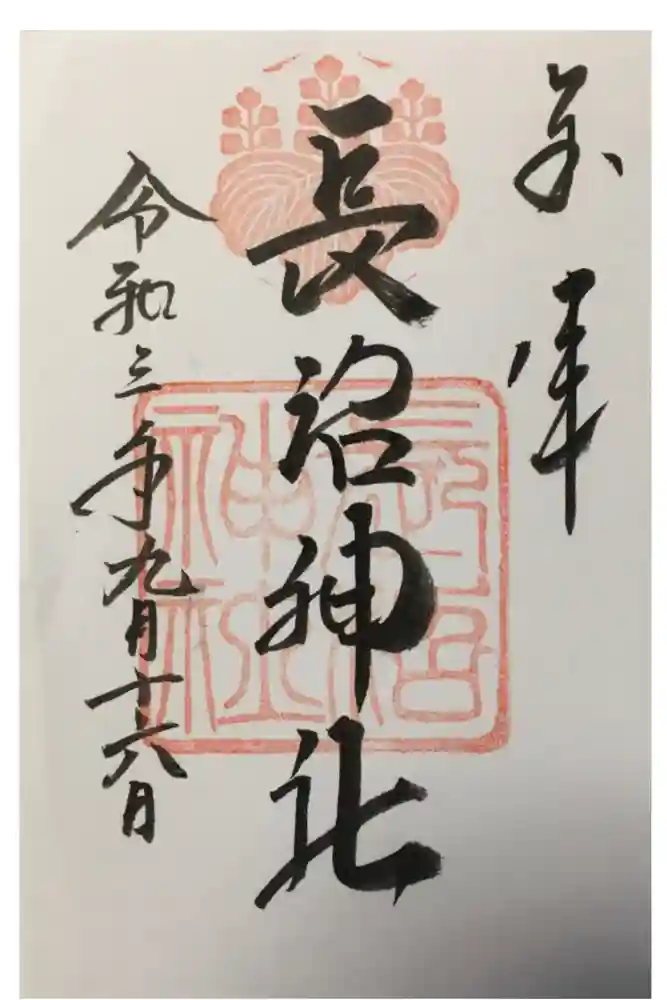 奉拝
長沼神社
令和三年九月十六日
長沼
神社